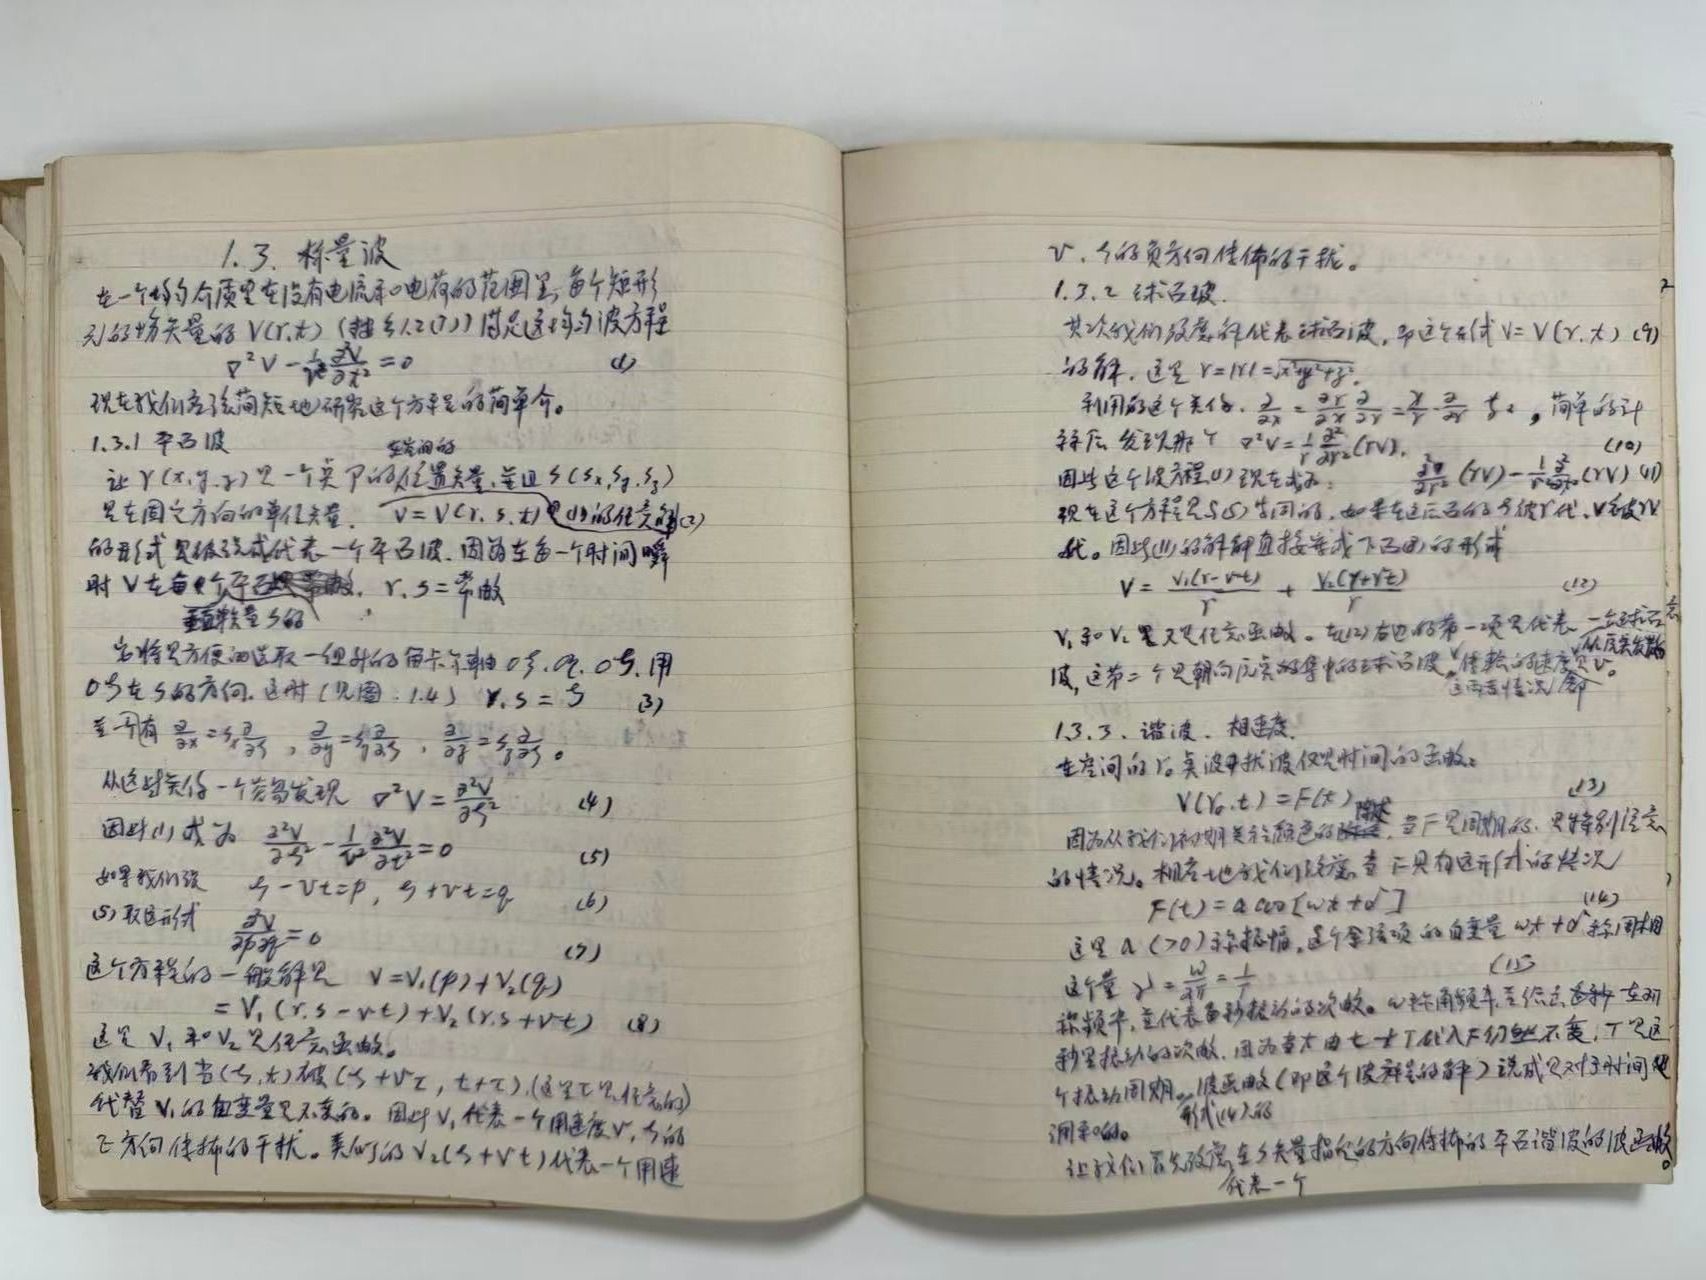 1.3. 标量波
在一个均匀介质里在没有电流和电荷的范围里,每个矩形
的场矢量的 V(r,t) 满足这均匀波方程
∇²V - 1/v² ∂²V/∂t² = 0 (1)
现在我们应该简短地研究这个方程的简单介。
1.3.1 平面波
在空间的
让 r(x,y,z) 是一个点P的位置矢量,并且 s(sx,sy,sz)
是在固定方向的单位矢量. V=V(r.s,t) 是(1)的任意解(2)
的形式 代表一个平面波.因为在每一个时间瞬
时 V 在每个平面 r.s=常数
垂直矢量s的
它将是方便的选取一组新的 轴 Oξ.Oη.Oζ.用
Oζ在s的方向.这时(见图:1.4) r.s=ζ (3)
并有 ∂/∂x=sx ∂/∂ζ , ∂/∂y=sy ∂/∂ζ , ∂/∂z=sz ∂/∂ζ 。
从这些关系一个容易发现 ∇²V = ∂²V/∂ζ² (4)
因此(1)成为 ∂²V/∂ζ² - 1/v² ∂²V/∂t² = 0 (5)
如果我们设 ζ-vt=p, ζ+vt=q (6)
(5)取这形式 ∂²V/∂p∂q = 0 (7)
这个方程的一般解是 V=V₁(p)+V₂(q)
= V₁(r.s-vt)+V₂(r.s+vt) (8)
这里 V₁ 和 V₂ 是任意函数。
我们看到当(ζ,t)被(ζ+vτ, t+τ),(这里τ是任意的)
代替 V₁的自变量是不变的。因此 V₁代表一个用速度v,ζ的
正方向传播的干扰。类似的 V₂(ζ+vt)代表一个用速
v.ζ的负方向传播的干扰。
1.3.2 球面波.
其次我们考虑解代表球面波,即这个形式 V=V(r,t) (9)
的解.这里 r=|r|=√x²+y²+z².
利用的这个关系. ∂/∂x = ∂r/∂x ∂/∂r = x/r ∂/∂r 等,简单的计
算后 发现那个 ∇²V = 1/r ∂²/∂r² (rV). (10)
因此这个波方程(1)现在成为: ∂²/∂r² (rV) - 1/v² ∂²/∂t² (rV) (11)
现在这个方程是与(5)等同的,如果在这后面的ζ被r代,V被rV
代。因此(11)的解 直接 成下面的形式
V = V₁(r-vt)/r + V₂(r+vt)/r (12)
V₁和V₂ 里又是任意函数。在(12)右边的第一项是代表一个球面
从原点发散
波,这第二个是朝向原点的集中的球面波.传播的速度 v。
这两者情况 都
1.3.3. 谐波.相速度.
在空间的 点波干扰波仅是时间的函数:
V(r₀,t)=F(t) (13)
因为从我们 初期关于颜色的 ,当F是周期的.是特别注意
的情况。相应地我们考虑,当F具有这形式的情况
F(t)=a cos[ωt+δ] (14)
这里a(>0)称振幅.这个余弦项的自变量 ωt+δ称周相
这个量 ν = ω/2π = 1/T (15)
称频率,并代表每秒振动的次数。ω称角频率,并给出 在2π
秒里振动的次数.因为当t由t+T代入F仍然不变,T是这
个振动周期。波函数(即这个波方程的解) 说成是对于时间
形式(14)的
调和的。
让我们首先考虑在s矢量指定的方向传播的平面谐波的波函数。
代表一个